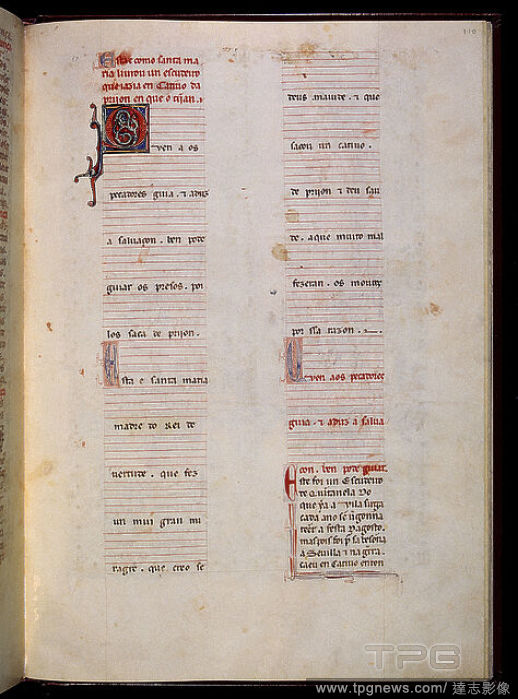 Esta e como santa ma
ria liurou un escudeiro
que iazia en Catiuo da
prijon en que o tijan.
Quen aos
pecadores guia. & aduz
a saluaçon. ben pode
guiar os presos. poi
los saca de prijon.
Esta e santa maria
madre do Rei de
uertude. que fez
un mui gran mi
ragre. que creo se
deus maiude. & que
sacou un catiuo.
de prijon & deu sau
de. a que muito mal
fezeran. os mouros
por ssa razon.
Quen aos pecadores
guia. & aduz a salua
con. ben pode guiar.
Este foi un Escudeiro
de Quitanela Do
que ya a Vila sirga
cada ano
a festa Dagosto.
mas pois foi
a Seuilla & na
caeu en Catiuo en
110
TPG
www.tpgnews.com/ 達志影像